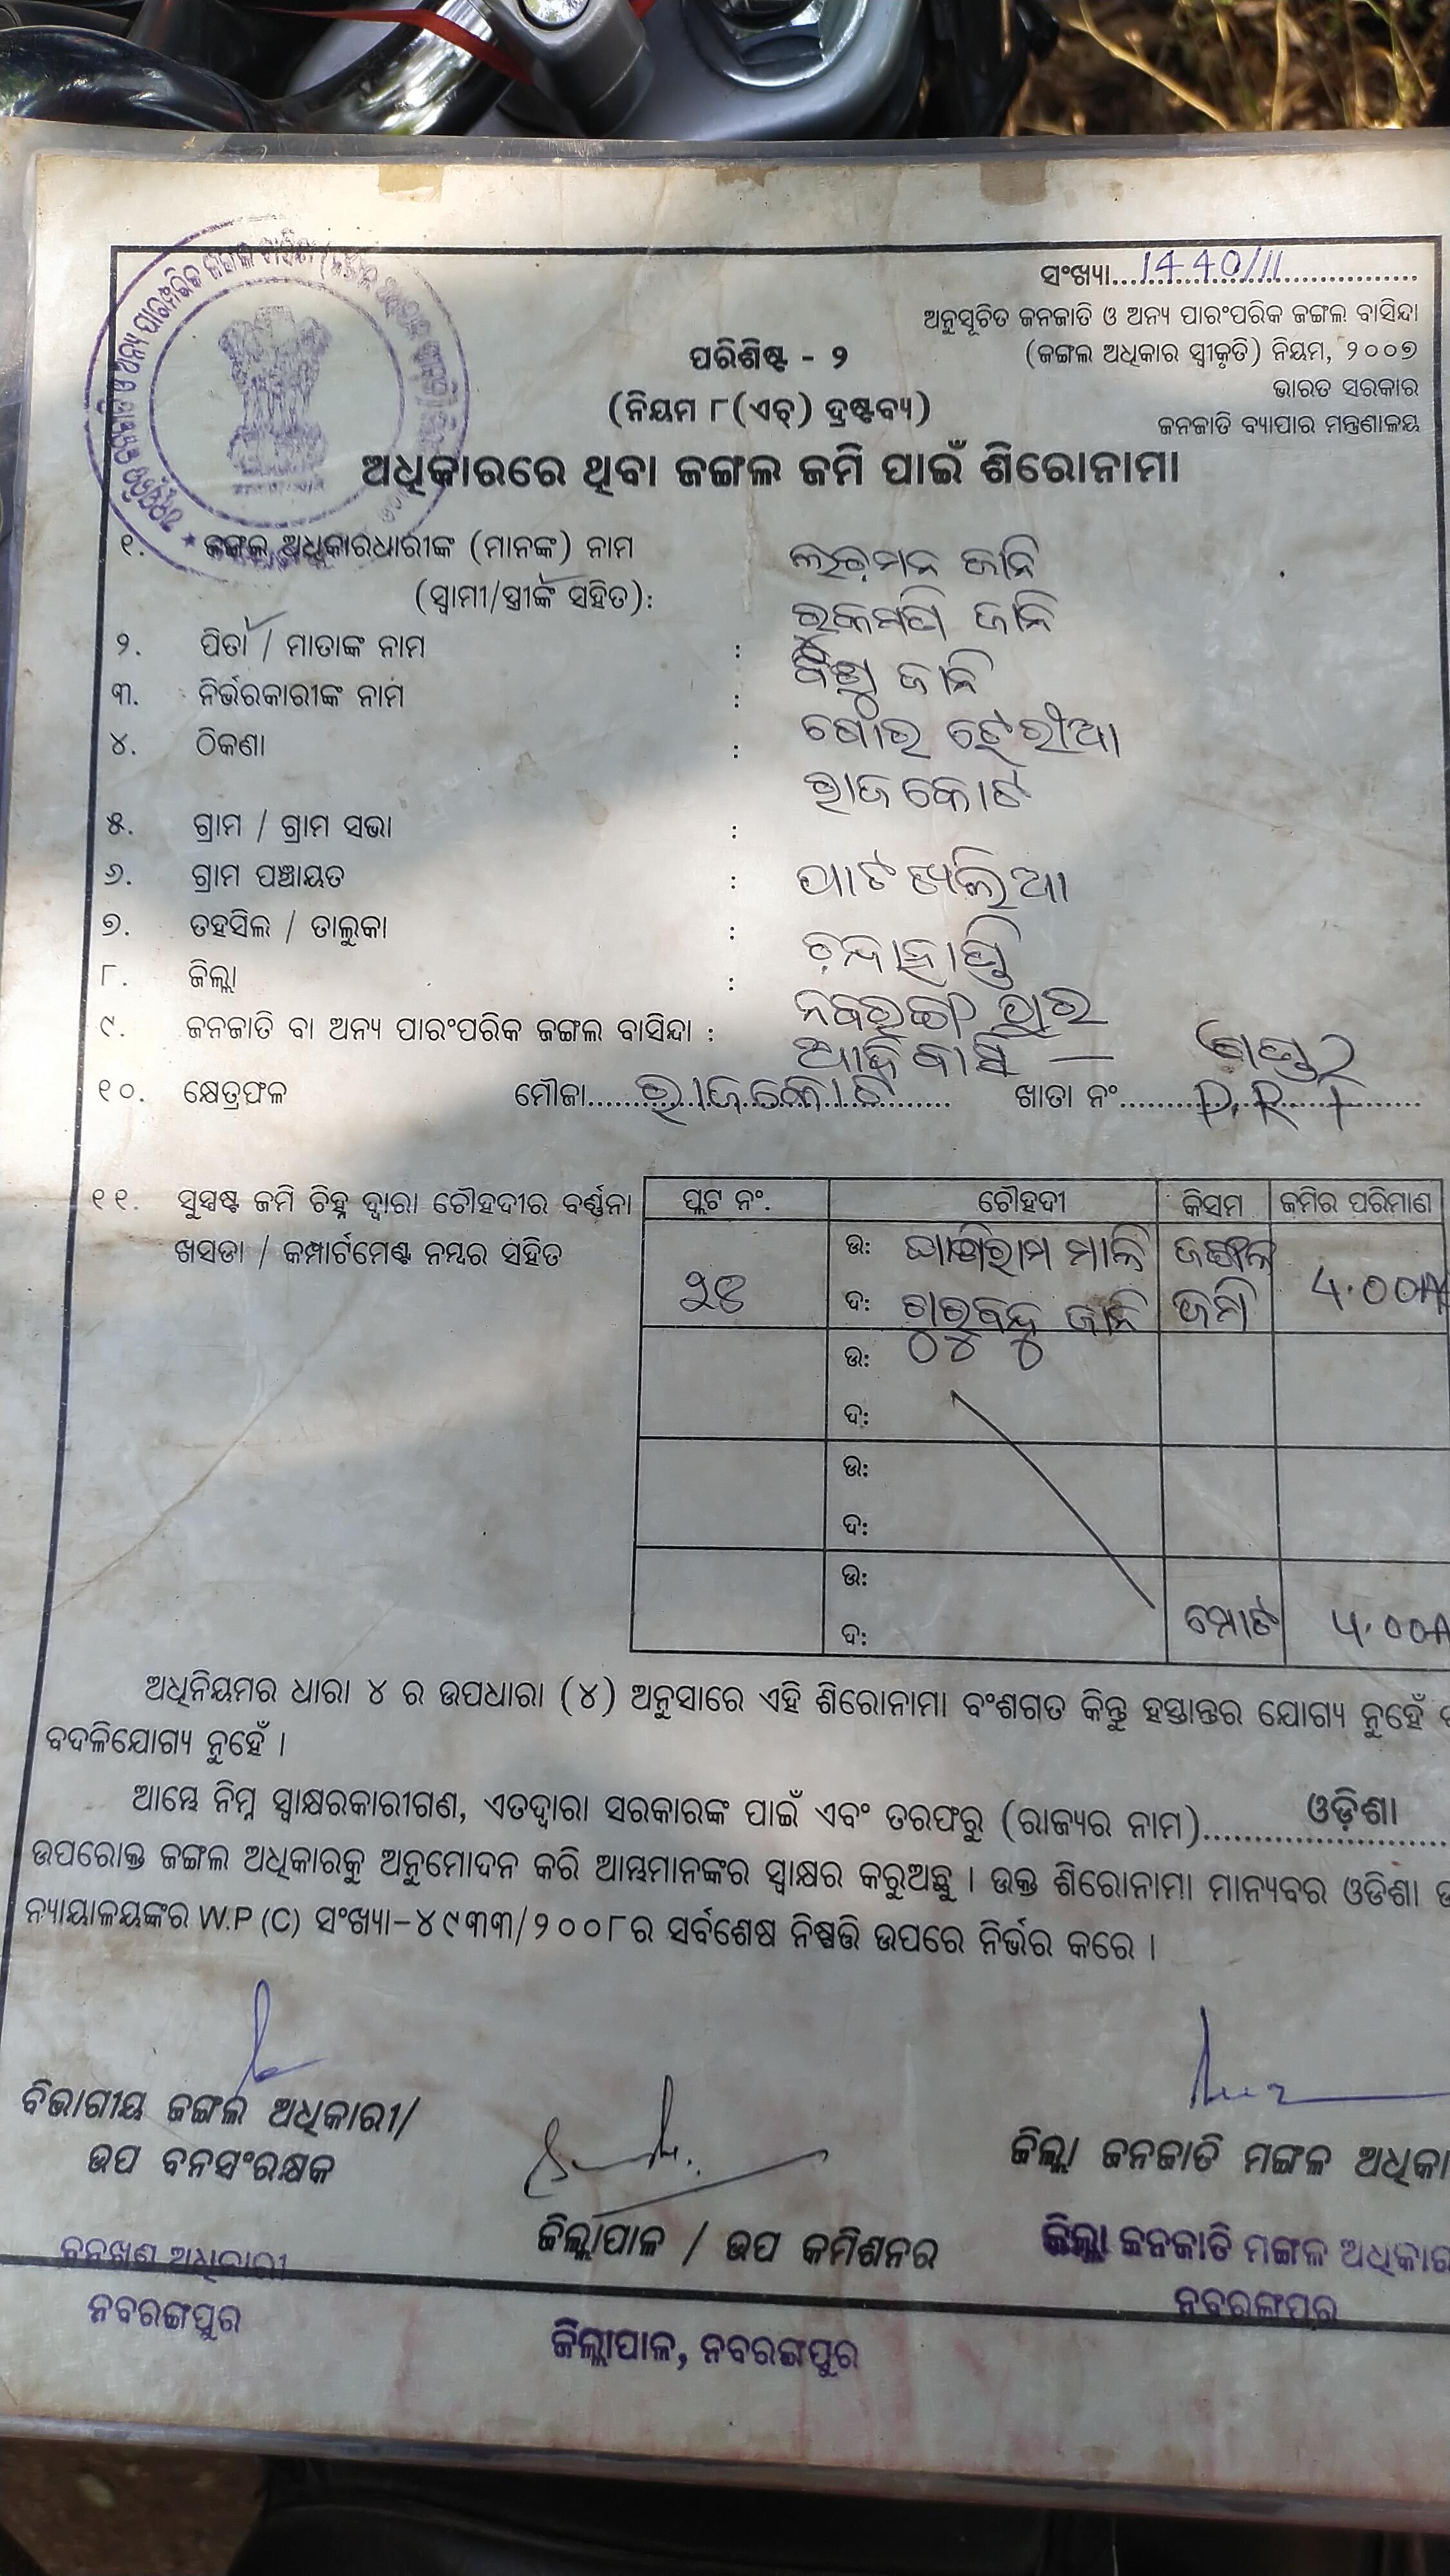 ସଂଖ୍ୟା....1440/11....
ଅନୁସୂଚିତ ଜନଜାତି ଓ ଅନ୍ୟ ପାରଂପରିକ ଜଙ୍ଗଲ ବାସିନ୍ଦା
ପରିଶିଷ୍ଟ - ୨
(ଜଙ୍ଗଲ ଅଧିକାର ସ୍ୱୀକୃତି) ନିୟମ, ୨୦୦୭
ଭାରତ ସରକାର
(ନିୟମ ୮(ଏଚ୍) ଦ୍ରଷ୍ଟବ୍ୟ)
ଜନଜାତି ବ୍ୟାପାର ମନ୍ତ୍ରଣାଳୟ
ଅଧିକାରରେ ଥିବା ଜଙ୍ଗଲ ଜମି ପାଇଁ ଶିରୋନାମା
୧. ଜଙ୍ଗଲ ଅଧିକାରଧାରୀଙ୍କ (ମାନଙ୍କ) ନାମ ଲଚ଼ମନ ଜାନି
(ସ୍ୱାମୀ/ସ୍ତ୍ରୀଙ୍କ ସହିତ): ରୁକମଣି ଜାନି
୨. ପିତା / ମାତାଙ୍କ ନାମ : ବିଷ୍ଣୁ ଜାନି
୩. ନିର୍ଭରକାରୀଙ୍କ ନାମ :
୪. ଠିକଣା : ରାଜକୋଟ
୫. ଗ୍ରାମ / ଗ୍ରାମ ସଭା :
୬. ଗ୍ରାମ ପଞ୍ଚାୟତ : ପାଟଖଲିଆ
୭. ତହସିଲ / ତାଲୁକା : ଚନ୍ଦାହାଣ୍ଡି
୮. ଜିଲ୍ଲା : ନବରଙ୍ଗପୁର
୯. ଜନଜାତି ବା ଅନ୍ୟ ପାରଂପରିକ ଜଙ୍ଗଲ ବାସିନ୍ଦା : ଆଦିବାସି —
୧୦. କ୍ଷେତ୍ରଫଳ ମୌଜା....ରାଜକୋଟ.... ଖାତା ନଂ....
୧୧. ସୁସ୍ପଷ୍ଟ ଜମି ଚିହ୍ନ ଦ୍ୱାରା ଚୌହଦୀର ବର୍ଣ୍ଣନା ପ୍ଲଟ ନଂ. ଚୌହଦୀ କିସମ ଜମିର ପରିମାଣ
ଖସଡା / କମ୍ପାର୍ଟମେଣ୍ଟ ନମ୍ବର ସହିତ ଉ: ଘାସିରାମ ମାଳି ଜଙ୍ଗଲ 4.00A
ଦ: ଗୁରୁବନ୍ଧୁ ଜାନି ଜମି
ଉ:
ଦ:
ଉ:
ଦ:
ଉ:
ଦ: ମୋଟ 4.00A
ଅଧିନିୟମର ଧାରା ୪ ର ଉପଧାରା (୪) ଅନୁସାରେ ଏହି ଶିରୋନାମା ବଂଶଗତ କିନ୍ତୁ ହସ୍ତାନ୍ତର ଯୋଗ୍ୟ ନୁହେଁ
ବଦଳିଯୋଗ୍ୟ ନୁହେଁ ।
ଆମ୍ଭେ ନିମ୍ନ ସ୍ୱାକ୍ଷରକାରୀଗଣ, ଏତଦ୍ୱାରା ସରକାରଙ୍କ ପାଇଁ ଏବଂ ତରଫରୁ (ରାଜ୍ୟର ନାମ)....ଓଡ଼ିଶା....
ଉପରୋକ୍ତ ଜଙ୍ଗଲ ଅଧିକାରକୁ ଅନୁମୋଦନ କରି ଆମ୍ଭମାନଙ୍କର ସ୍ୱାକ୍ଷର କରୁଅଛୁ । ଉକ୍ତ ଶିରୋନାମା ମାନ୍ୟବର ଓଡିଶା
ନ୍ୟାୟାଳୟଙ୍କର W.P (C) ସଂଖ୍ୟା-୪୯୩୩/୨୦୦୮ର ସର୍ବଶେଷ ନିଷ୍ପତ୍ତି ଉପରେ ନିର୍ଭର କରେ ।
ବିଭାଗୀୟ ଜଙ୍ଗଲ ଅଧିକାରୀ/
ଉପ ବନସଂରକ୍ଷକ
ଜିଲ୍ଲା ଜନଜାତି ମଙ୍ଗଳ ଅଧିକା
ଜିଲ୍ଲାପାଳ / ଉପ କମିଶନର
ବନଖଣ୍ଡ ଅଧିକାରୀ
ନବରଙ୍ଗପୁର
ଜିଲ୍ଲା ଜନଜାତି ମଙ୍ଗଳ ଅଧିକାର
ନବରଙ୍ଗପୁର
ଜିଲ୍ଲାପାଳ, ନବରଙ୍ଗପୁର